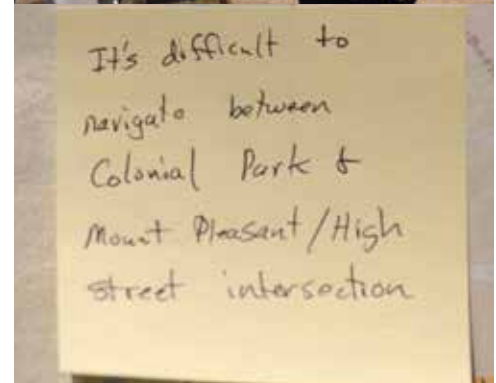 It's difficult to
navigate between
Colonial Park &
Mount Pleasant/High
street intersection